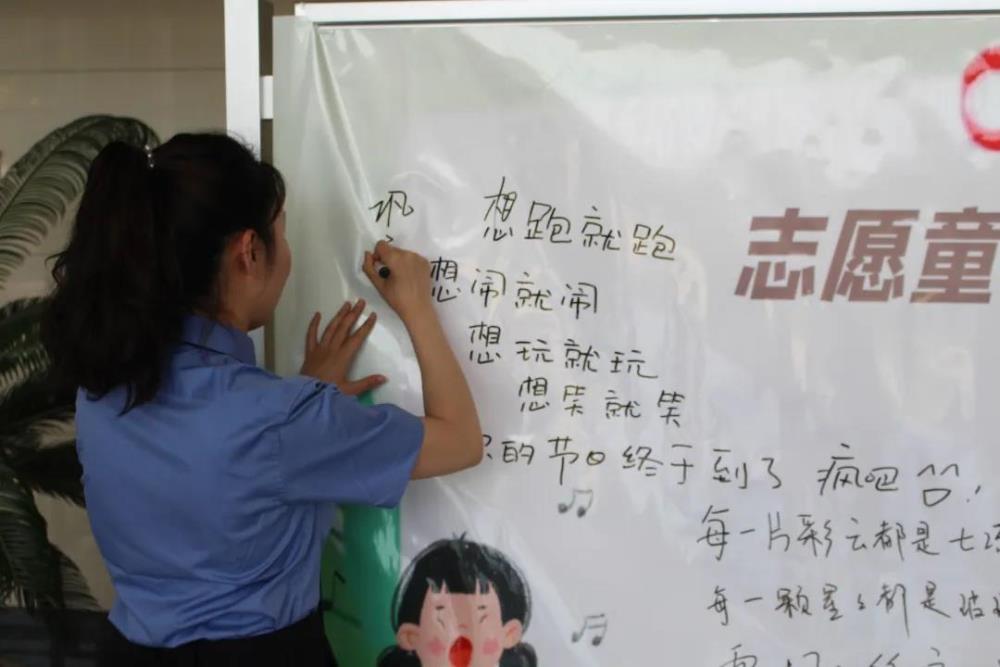 想跑就跑
想闹就闹
志愿童
想玩就玩
想笑就笑
的节日终于到了 疯吧
每一片彩云都是七
每一颗星星都是